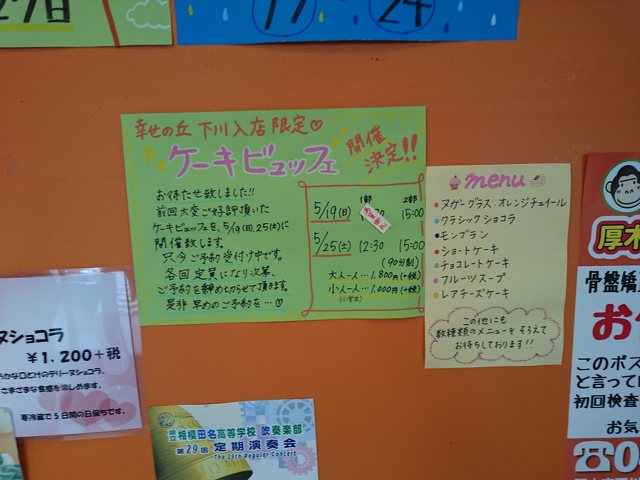 27日
17 ~ 24
幸せの丘 下川入店限定♡
ケーキビュッフェ
開催
決定!!
お待たせ致しました!!
前回大変ご好評頂いた
ケーキビュッフェを、5/19(日)、25(土)に
開催致します。
只今ご予約受付中です。
各回定員になり次第、
ご予約を締め切らせて頂きます。
是非 早めのご予約を…♡
1部 2部
5/19(日) 15:00
5/25(土) 12:30 15:00
(90分制)
大人一人…1.800円(+税)
小人一人…1.000円(+税)
(小学生)
menu
・ヌガーグラス オレンジチュイール
・クラシックショコラ
・モンブラン
・ショートケーキ
・チョコレートケーキ
・フルーツスープ
・レアチーズケーキ
この他にも
数種類のメニューをそろえて
お待ちしております!!
ヌショコラ
¥1,200+税
らかな口どけのテリーヌショコラ。
さまざまな食感を楽しめます。
要冷蔵で5日間の日保ちです。
相模田名高等学校 吹奏楽部
第29回 定期演奏会
The 29th Regular Concert
厚木
骨盤矯
お
このポス
と言って
初回検査
お気
☎0